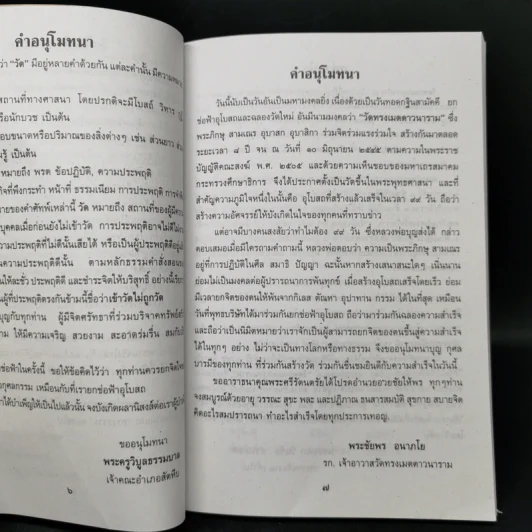 คำอนุโมทนา
ว่า “วัด” มีอยู่หลายคำด้วยกัน แต่ละคำนั้น มีความหมาย
สถานที่ทางศาสนา โดยปรกติจะมีโบสถ์ วิหาร
หรือนักบวช เป็นต้น
อบขนาดหรือปริมาณของสิ่งต่างๆ เช่น ส่วนยาว
รู้ เป็นต้น
หมายถึง พรต ข้อปฏิบัติ, ความประพฤติ
กิจที่พึงกระทำ หน้าที่ ธรรมเนียม การประพฤติ
ของคำศัพท์เหล่านี้ วัด หมายถึง สถานที่ของผู้มี
บุคคลเมื่อก่อนยังไม่เข้าวัด การประพฤติอาจไม่ดี
ความประพฤติที่ไม่ดีนั้นเสียได้ หรือเป็นผู้ประพฤติดีอยู่
มีความประพฤติดีนั้น ตามหลักธรรมคำสั่งสอน
นให้ละชั่ว ประพฤติดี และชำระจิตให้บริสุทธิ์ อย่างนี้เรียก
ผู้ที่ประพฤติตรงกันข้ามนี้ชื่อว่าเข้าวัดไม่ถูกวัด
บุญกับทุกท่าน ผู้มีจิตศรัทธาที่ร่วมบริจาคทรัพย์
ห้ มีความเจริญ สวยงาม สะอาดร่มรื่น สม
ช่อฟ้าในครั้งนี้ ขอให้ข้อคิดไว้ว่า ทุกท่านควรยกจิต
กุศลกรรม เหมือนกับที่เรายกช่อฟ้าอุโบสถ
ได้บำเพ็ญให้เป็นไปแล้วนั้น จงบังเกิดผลานิสงส์ต่อเรา
ขออนุโมทนา
พระครูวิบูลธรรมบาล
เจ้าคณะอำเภอสัตหีบ
๖
คำอนุโมทนา
วันนี้นับเป็นวันอันเป็นมหามงคลยิ่ง เนื่องด้วยเป็นวันทอดกฐินสามัคคี ยก
ช่อฟ้าอุโบสถและฉลองวัดใหม่ อันมีนามมงคลว่า “วัดทรงเมตตาวนาราม” ซึ่ง
พระภิกษุ สามเณร อุบาสก อุบาสิกา ร่วมจิตร่วมแรงร่วมใจ สร้างกันมาตลอด
ระยะเวลา ๘ ปี จน ณ วันที่ ๑๐ มิถุนายน ๒๕๔๔ ตามความในพระราช
บัญญัติคณะสงฆ์ พ.ศ. ๒๕๐๕ และด้วยความเห็นชอบของมหาเถรสมาคม
กระทรวงศึกษาธิการ จึงได้ประกาศตั้งเป็นวัดขึ้นในพระพุทธศาสนา และที่
สำคัญความภูมิใจหนึ่งในนั้นคือ อุโบสถที่สร้างแล้วเสร็จในเวลา ๙๙ วัน ถือว่า
สร้างความอัศจรรย์ให้บังเกิดในใจของทุกคนที่ทราบข่าว
แต่อาจมีบางคนสงสัยว่าทำไมต้อง ๙๙ วัน ซึ่งหลวงพ่อบุญส่งได้ กล่าว
ตอบเสมอเมื่อมีใครถามคำถามนี้ หลวงพ่อตอบว่า ความเป็นพระภิกษุ สามเณร
อยู่ที่การปฏิบัติในศีล สมาธิ ปัญญา ฉะนั้นหากสร้างเสนาสนะใดๆ เนิ่นนาน
ย่อมไม่เป็นมงคลต่อผู้ปรารถนาการพ้นทุกข์ เมื่อสร้างอุโบสถเสร็จโดยเร็ว ย่อม
มีเวลายกจิตของตนให้พ้นจากกิเลส ตัณหา อุปาทาน กรรม ได้ในที่สุด เหมือน
วันที่พุทธบริษัทได้มาร่วมกันยกช่อฟ้าอุโบสถ ถือว่ามาร่วมกันฉลองความสำเร็จ
และถือว่าเป็นนิมิตหมายว่าเราจักเป็นผู้สามารถยกจิตของตนขึ้นสู่ความสำเร็จ
ได้ในทุกๆ อย่าง ไม่ว่าจะเป็นทางโลกหรือทางธรรม จึงขออนุโมทนาบุญ กุศล
บารมีของทุกท่าน ที่ร่วมกันสร้างวัด ร่วมกันชื่นชมยินดีกับความสำเร็จในวันนี้
ขออาราธนาคุณพระศรีรัตนตรัยได้โปรดอำนวยอวยชัยให้พร ทุกๆท่าน
จงสมบูรณ์ด้วยอายุ วรรณะ สุขะ พละ และปฏิภาณ ธนสารสมบัติ สุขกาย สบายจิต
คิดอะไรสมปรารถนา ทำอะไรสำเร็จโดยทุกประการเทอญ.
พระชัยพร อนาภโย
รก. เจ้าอาวาสวัดทรงเมตตาวนาราม
๗